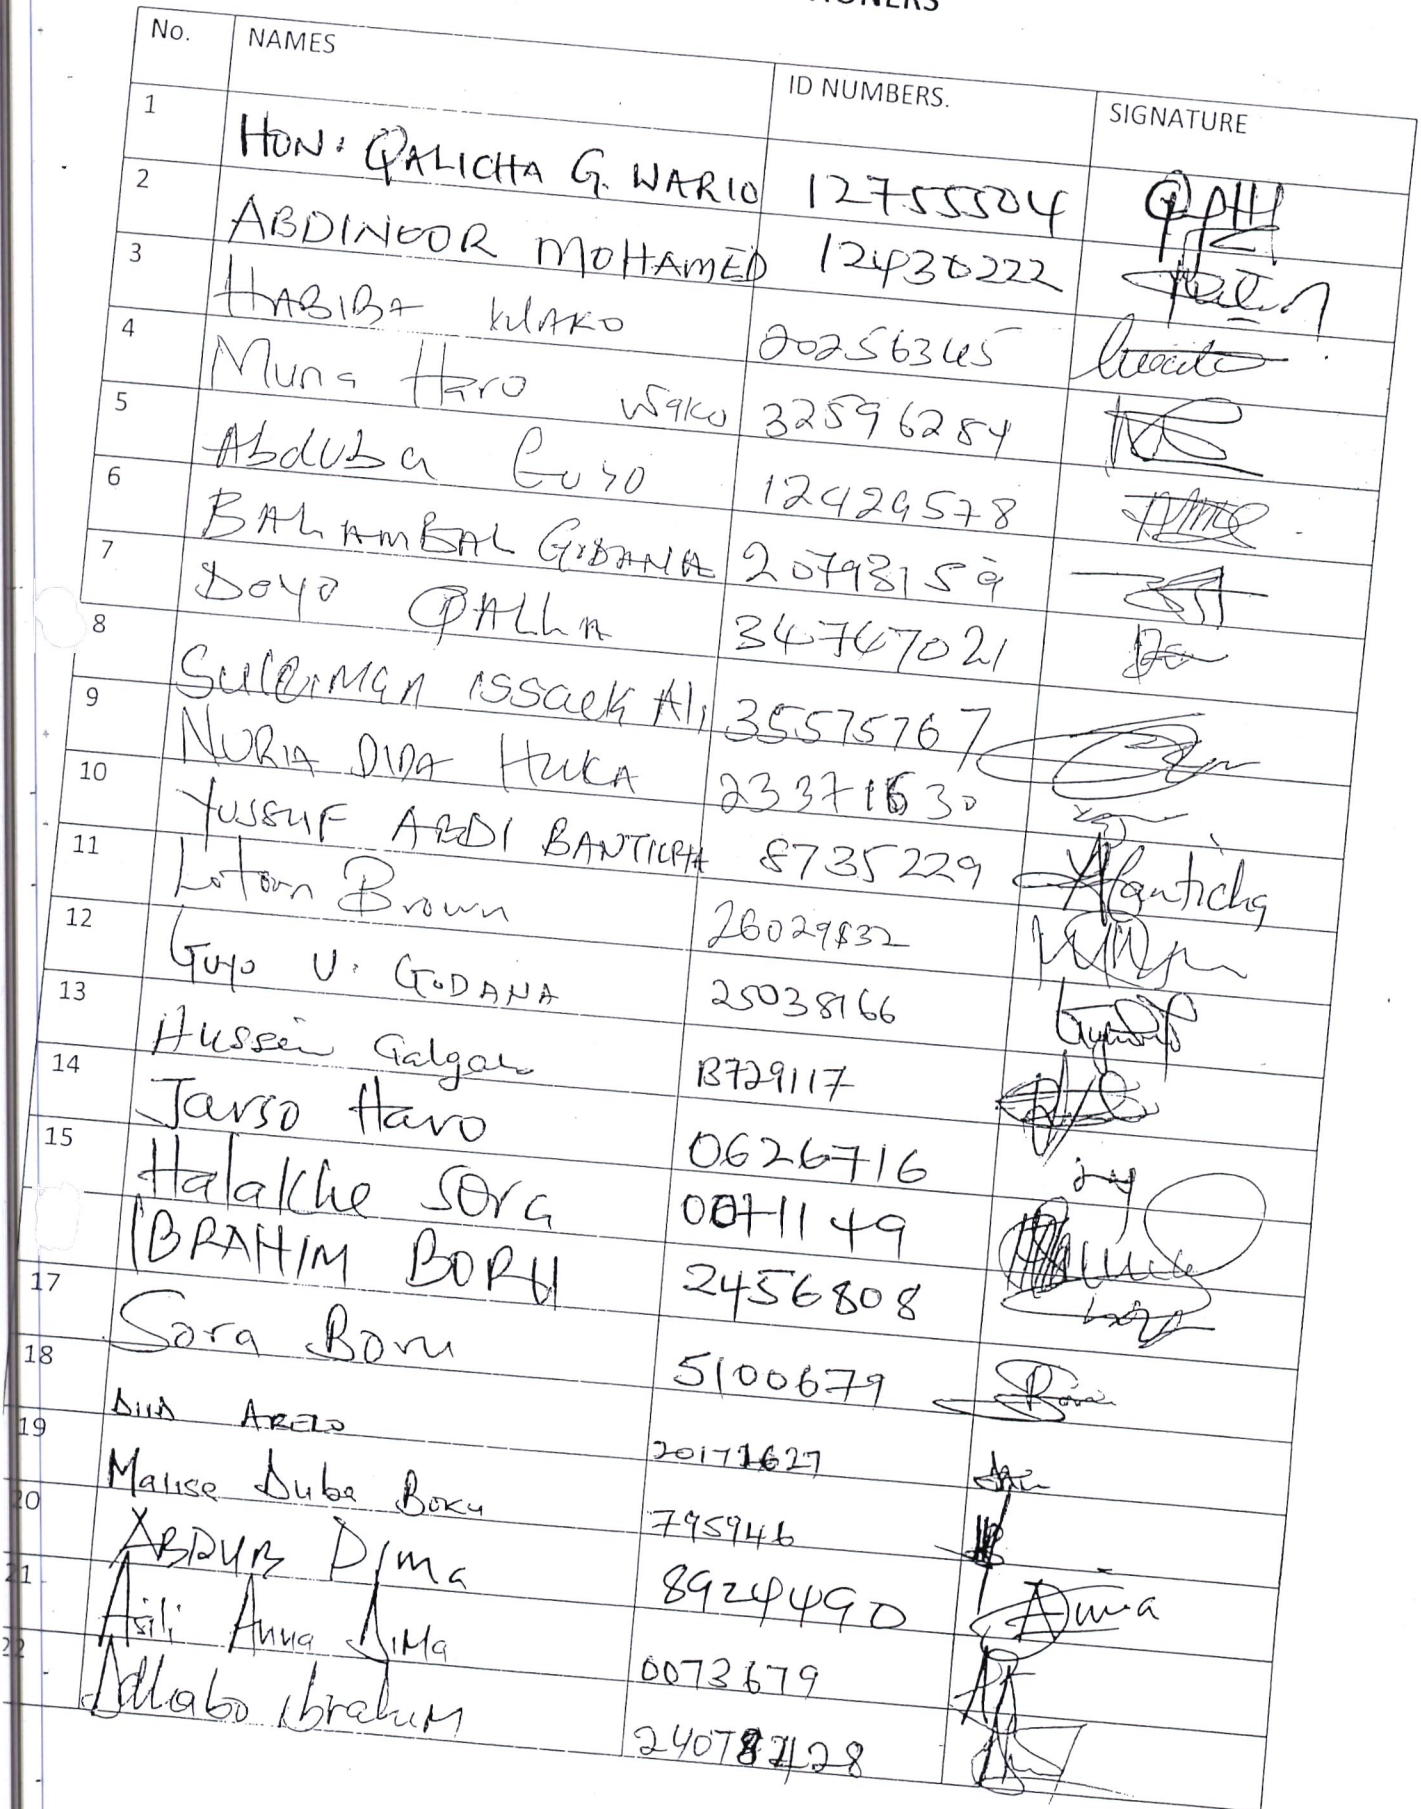 No. NAMES ID NUMBERS. SIGNATURE
1 HON. QALICHA G. WARIO 12755504
2 ABDINOOR MOHAMED 12430222
3 HABIBA WAKO 20256345
4 Muna Haro Wako 32596284
5 Abduba Guyo 12429578
6 BALAMBAL GODANA 20793159
7 Doyo QALLA 34767021
8 Suleiman issack Ali 35575767
9 NURIA DIDA HUKA
10 YUSSUF ABDI BANTICHA 8735229
11 Brown
12 Guyo U. GODANA 25038166
13 Hussein Galgalo
14 Jarso Haro 0626716
15 Halakhe Sora
IBRAHIM BORU 2456808
17 Sora Boru 5100679
18
19 Duba Boku 795946
20 Dima 8924490
21 Asili Anna Dima 0073679
22 Adhabo ibrahim